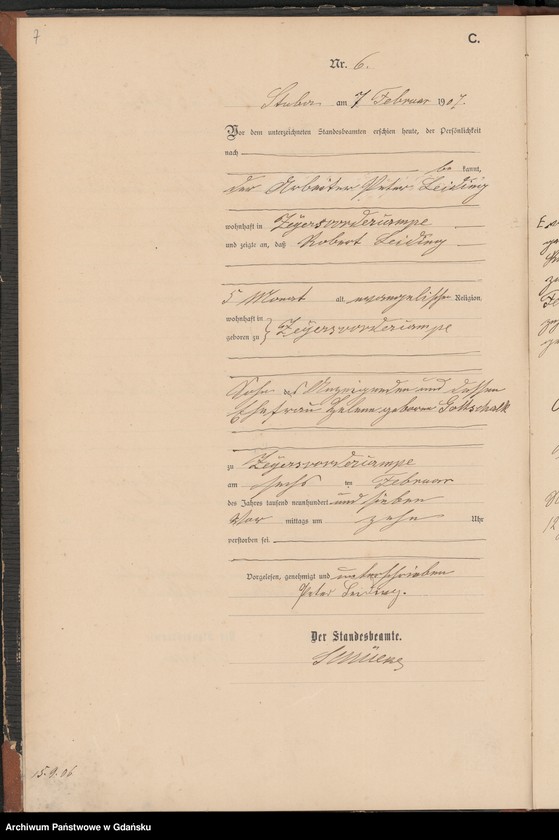 7
C.
Nr. 6.
Stuba am 7 Februar 1907.
Vor dem unterzeichneten Standesbeamten erschien heute, der Persönlichkeit
nach
be kannt,
der Arbeiter Peter Leiding
wohnhaft in Zeyersvorderkampe
und zeigte an, daß Robert Leiding
5 Monat alt, evangelischer Religion,
wohnhaft in
geboren zu } Zeyersvorderkampe
Sohn des Anzeigenden und dessen
Ehefrau Helene geborne Gottschalk
zu Zeyersvorderkampe
am sechs ten Februar
des Jahres tausend neunhundert und sieben
Vor mittags um zehn Uhr
verstorben sei.
Vorgelesen, genehmigt und unterschrieben
Peter Leiding.
Der Standesbeamte.
15.9.06
Archiwum Państwowe w Gdańsku